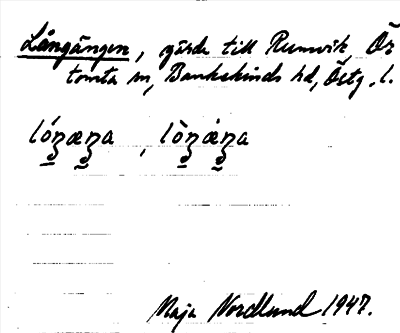 Långängen, gärde till Runvik, Ör
tomta sn, Bankekinds hd, Östg. l.
lóŋæŋa , lòŋáŋa
Maja Nordlund 1947.